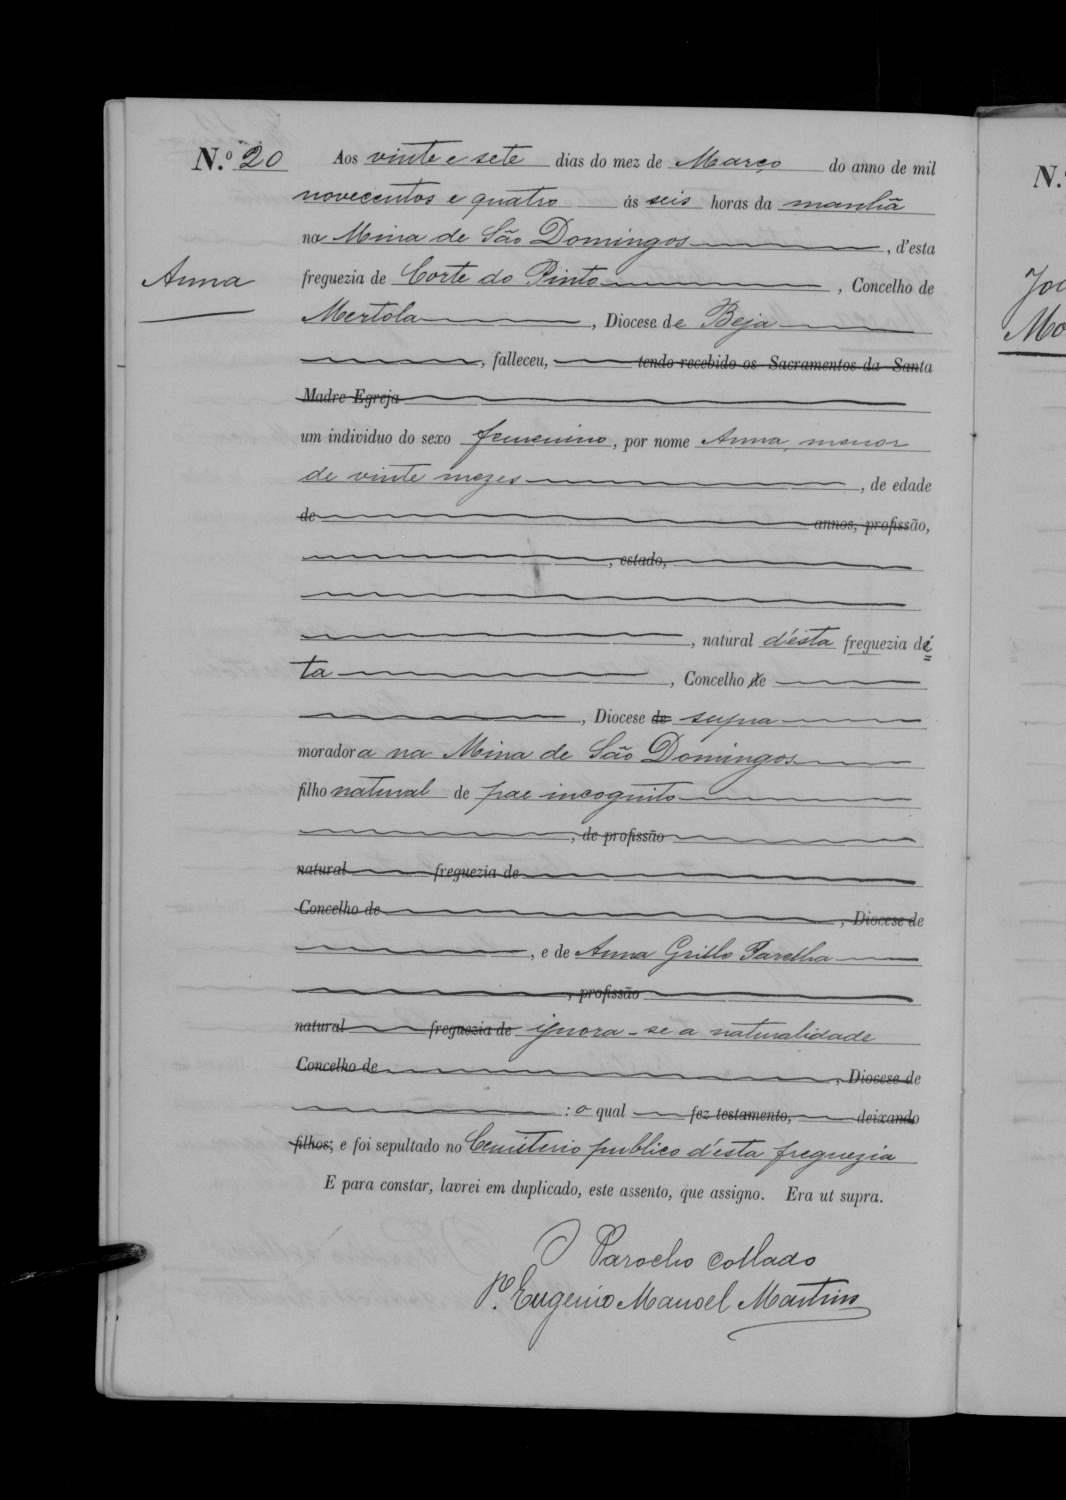 N.º 20
Aos vinte e sete dias do mez de Março do anno de mil
novecentos e quatro ás seis horas da manhã
na Mina de São Domingos, d'esta
Anna
freguezia de Corte do Pinto, Concelho de
Mertola, Diocese de Beja
, falleceu, tendo recebido os Sacramentos da Santa
Madre Egreja
um individuo do sexo femenino, por nome Anna, menor
de vinte mezes, de edade
de annos, profissão,
, estado,
, natural d'esta freguezia di
ta, Concelho de
, Diocese de supra
moradora na Mina de São Domingos
filho natural de pae incognito
, de profissão
natural freguezia de
Concelho de, Diocese de
, e de Anna Grillo Parelha
, profissão
natural freguezia de ignora-se a naturalidade
Concelho de, Diocese de
: o qual fez testamento, deixando
filhos; e foi sepultado no Cemiterio publico d'esta freguezia
E para constar, lavrei em duplicado, este assento, que assigno. Era ut supra.
O Parocho collado
P.e Eugenio Manoel Martins
N.
Mo